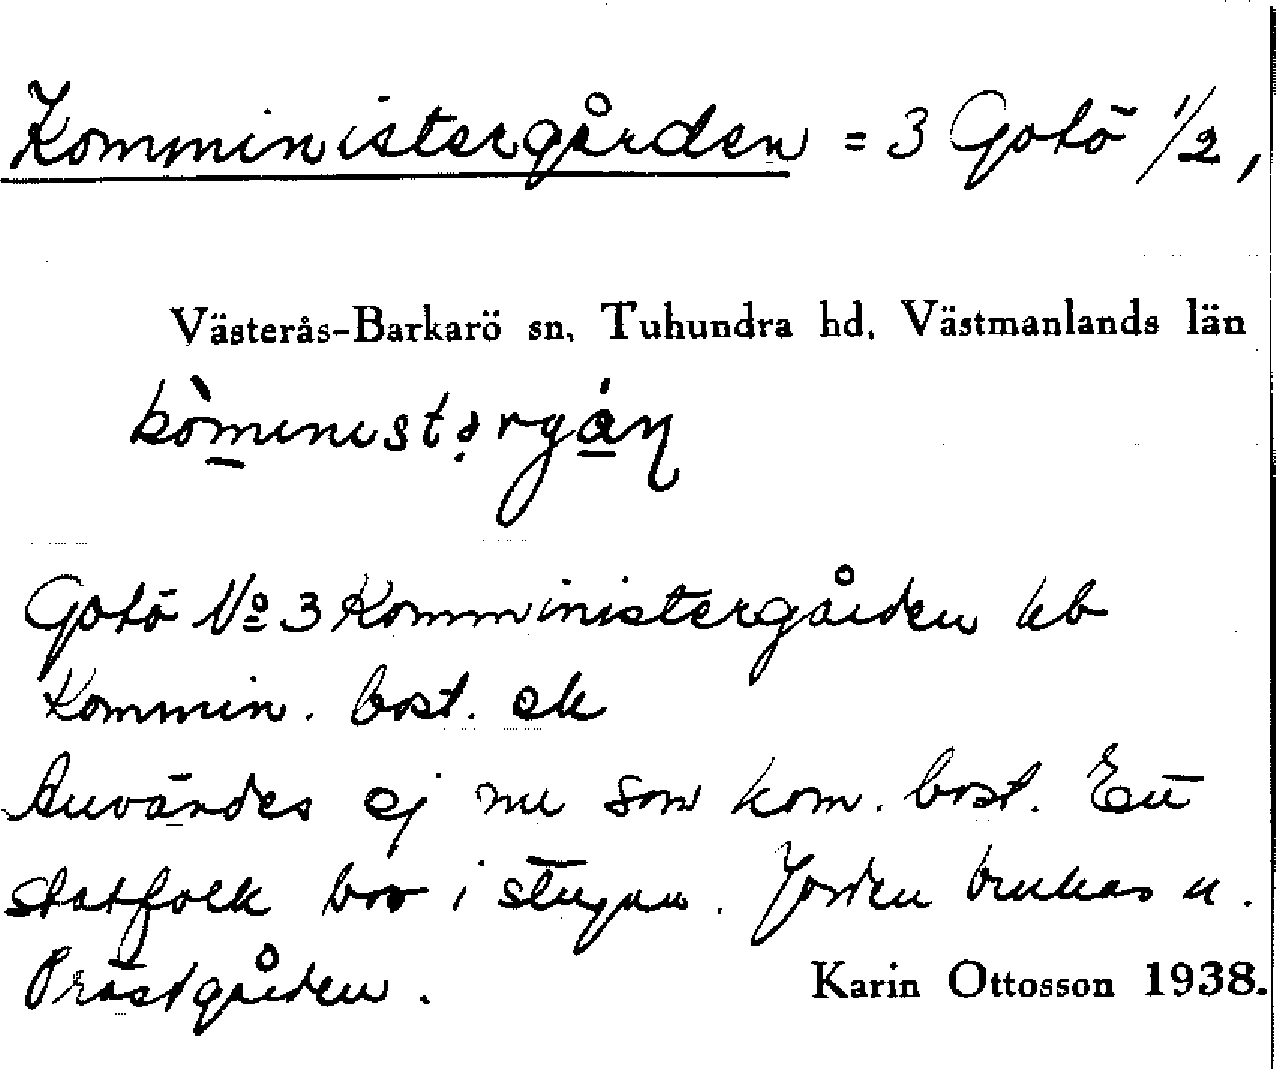 Komministergården = 3 Gotö 1/2,
Västerås-Barkarö sn. Tuhundra hd. Västmanlands län
Gotö No 3 Komministergården hb
Kommin. bost. ek
Användes ej nu som kom. bost. Ett
statfolk bor i stugan. Jorden brukas u.
Prästgården.
Karin Ottosson 1938.